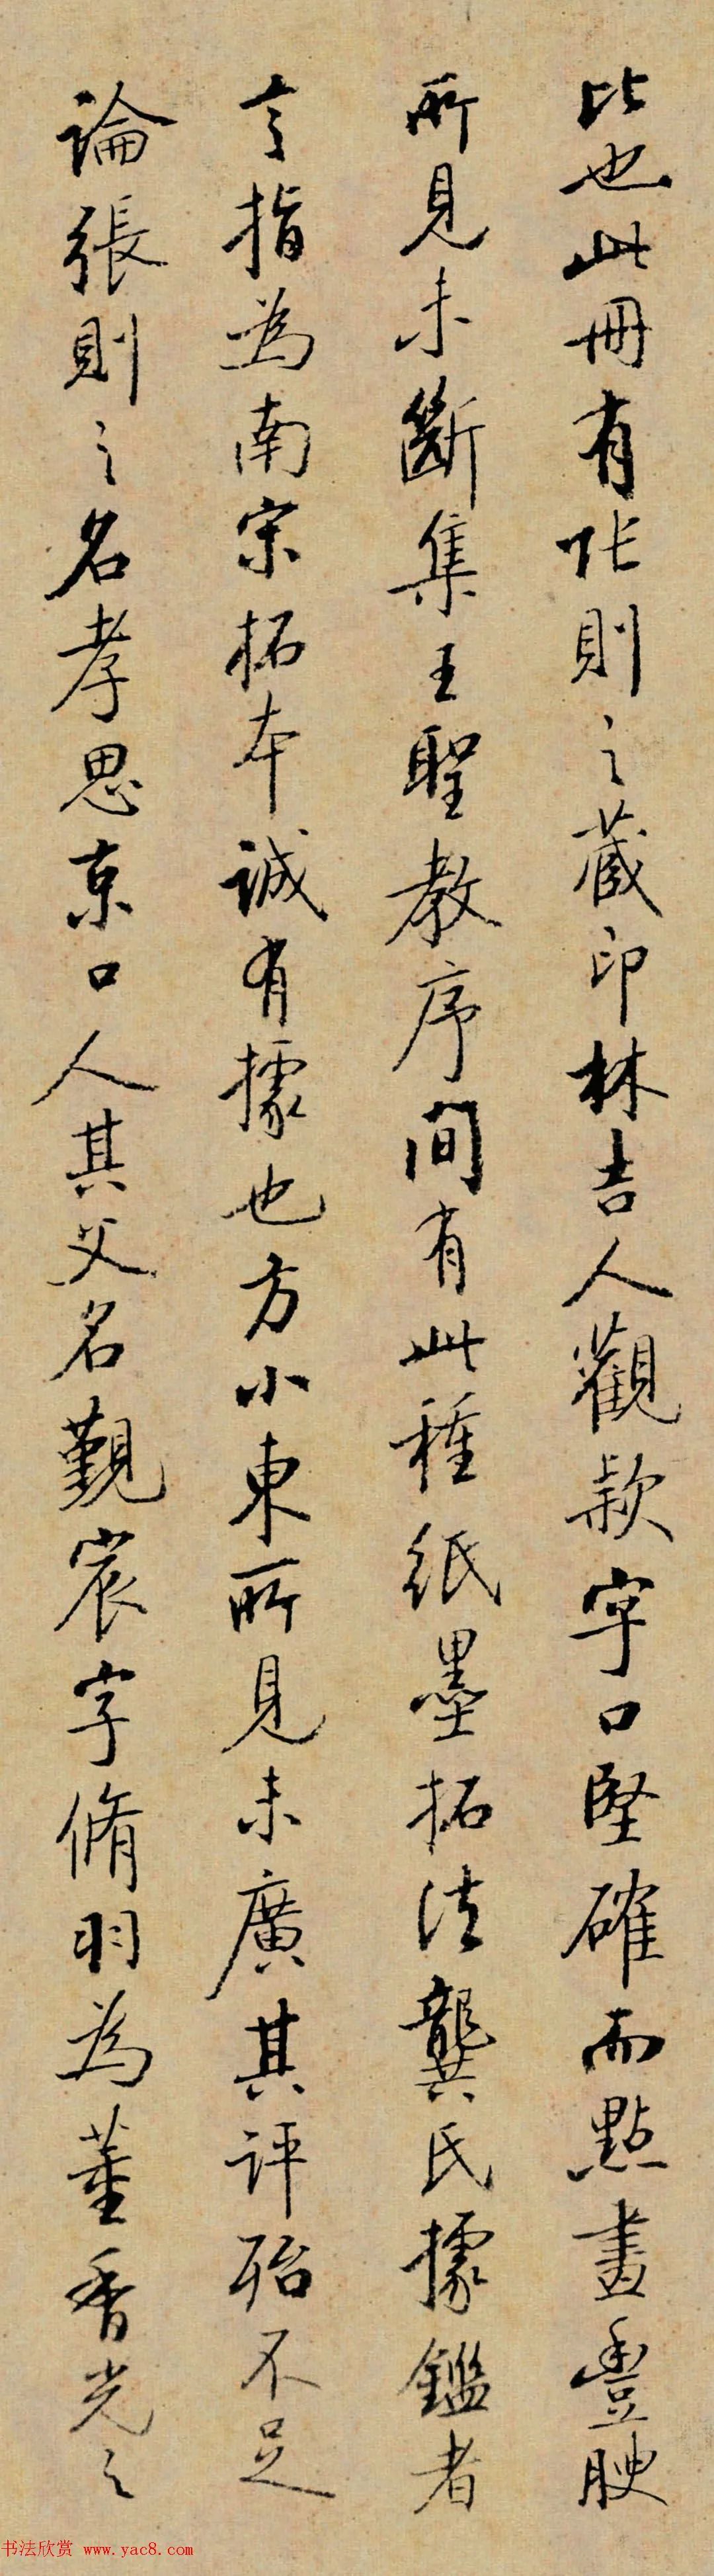 比也此冊有张則之藏印林吉人觀款字口堅確而點畫豐腴
所見未斷集王聖教序間有此種紙墨拓法龔氏據鑑者
言指為南宋拓本誠有據也方小東所見未廣其評殆不足
論張則之名孝思京口人其父名覲宸字脩羽為董香光之
书法欣赏 www.yac8.com